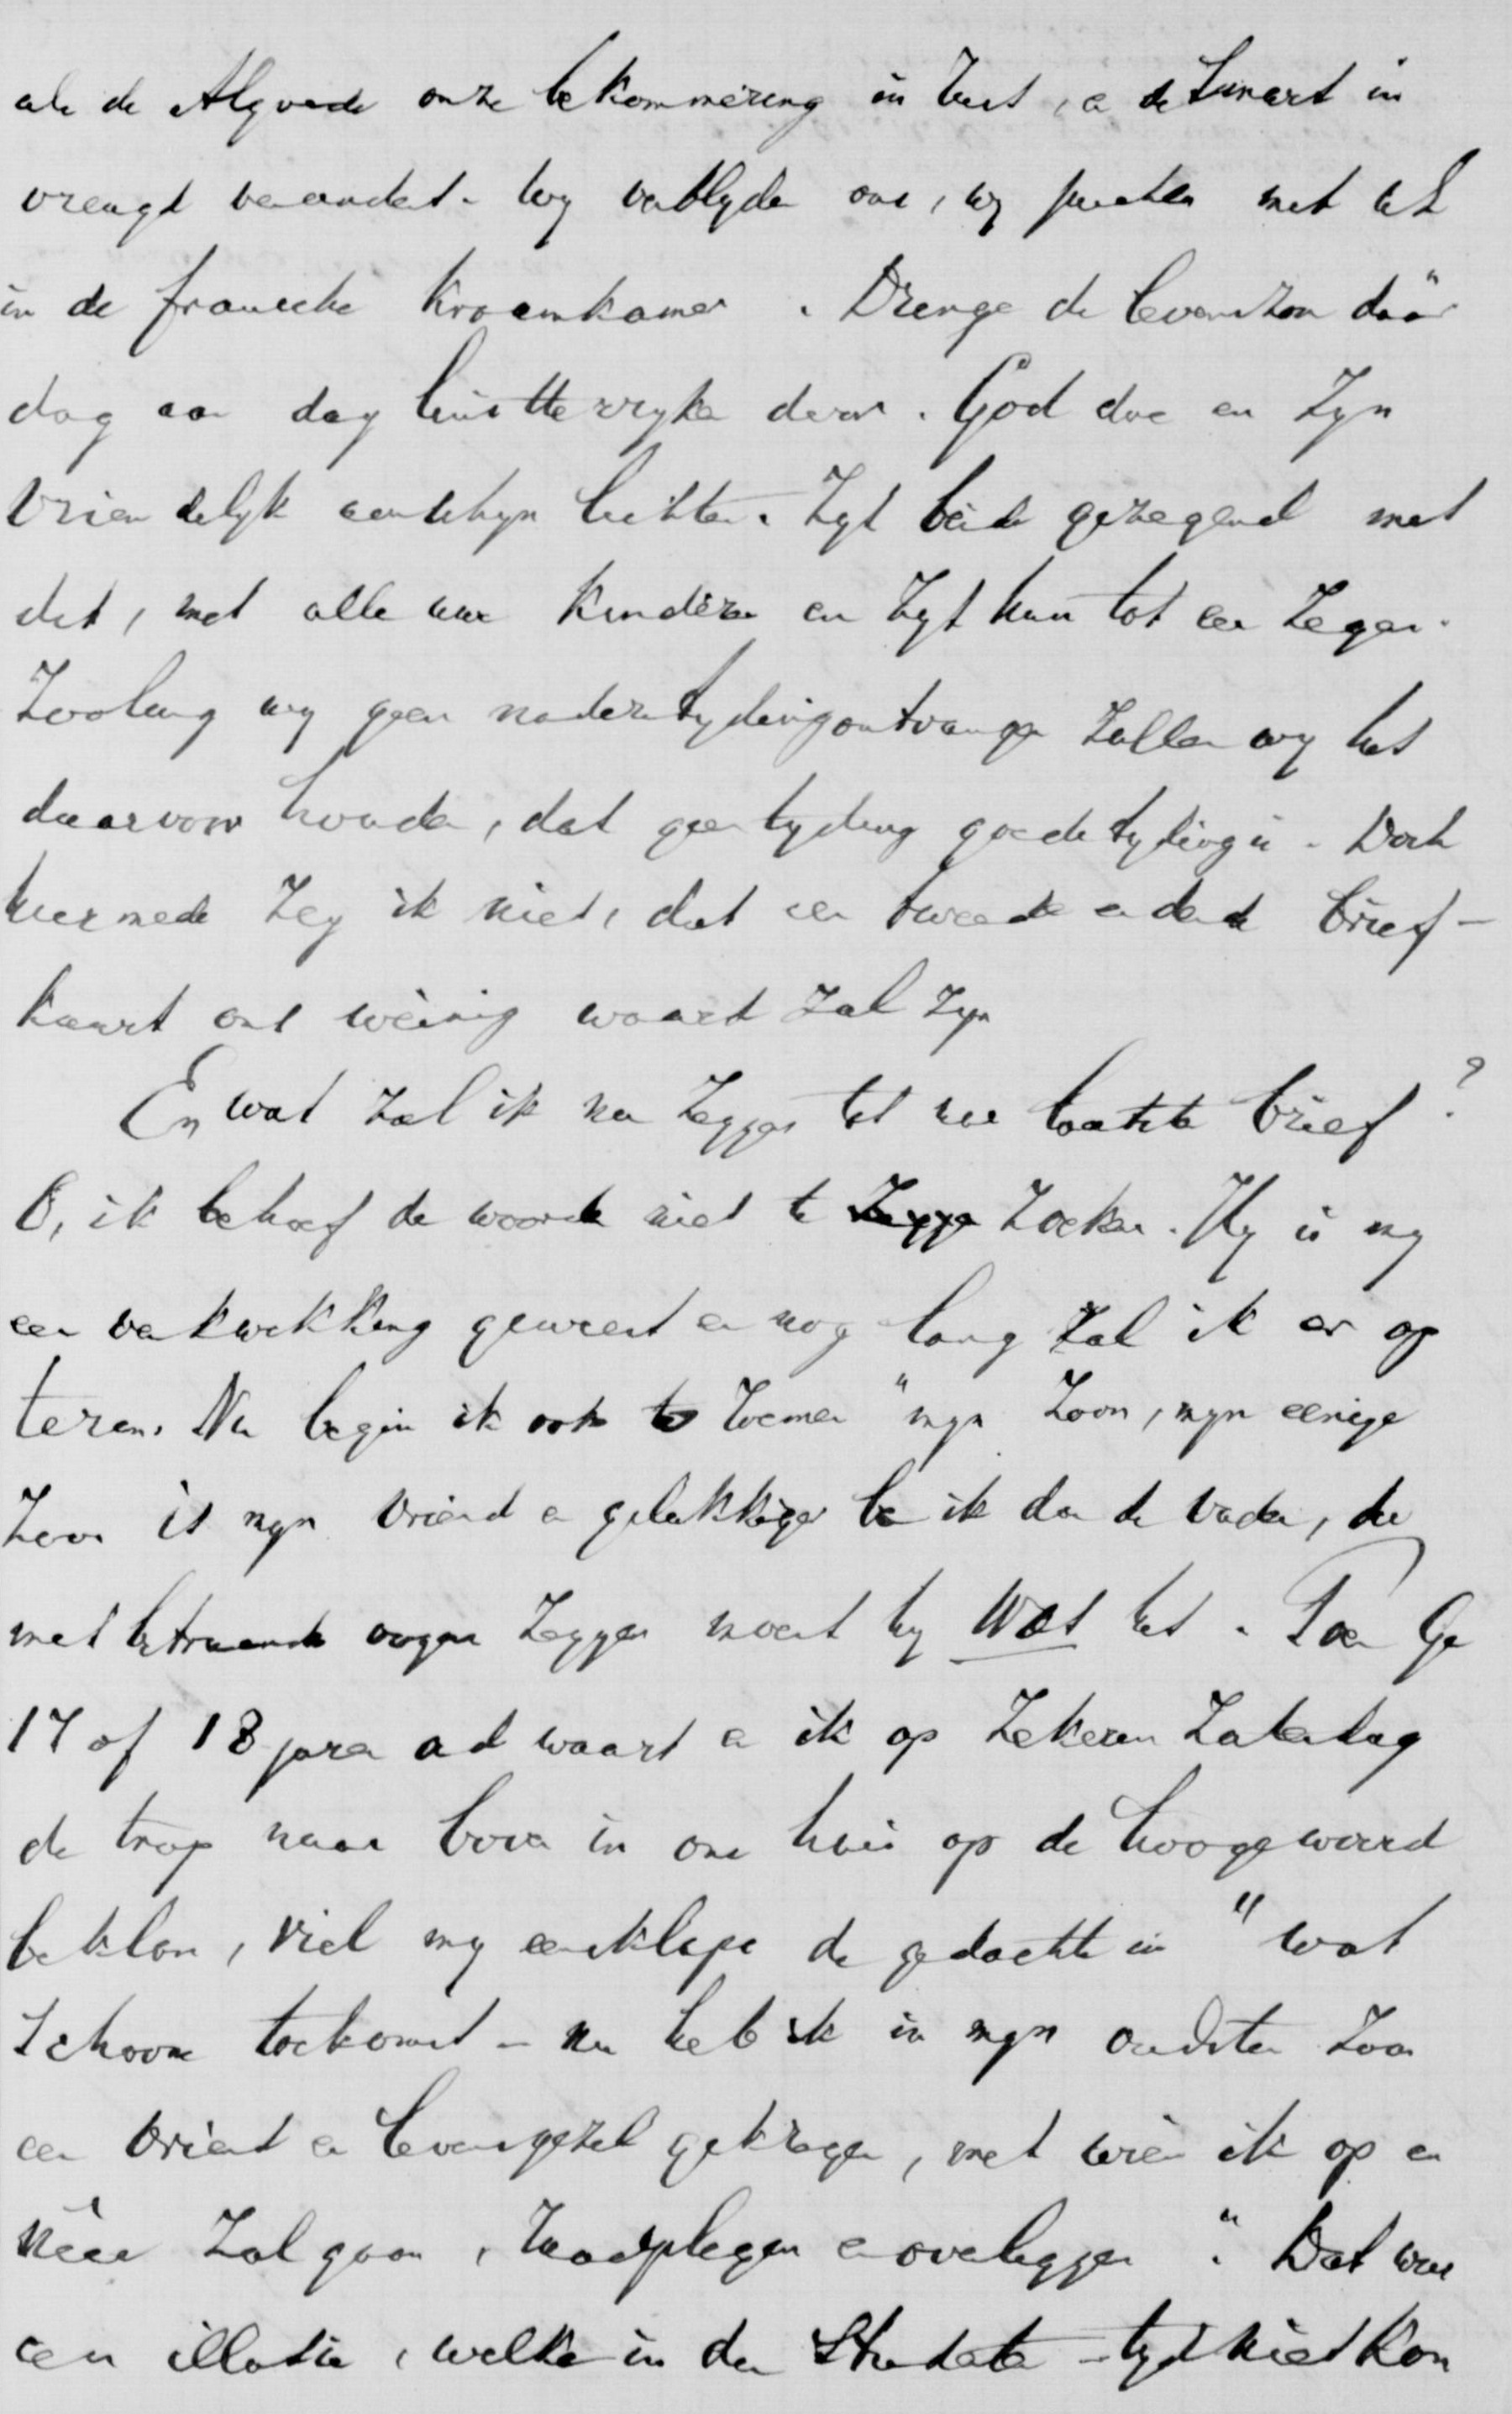 als de Algoede onze bekommering in lust, en de smart in
vreugd verandert. Wy verblyden ons, wy juichen met U
in de fransche Kraamkamer. Dringe de levenszon däär
dag aan dag luisterryker door. God doe er Zyn
Vriendelyk aanschyn lichten. Zyt beide gezegend met
dit, met alle uwe Kinderen en Zyt hun tot een Zegen.
Zoolang wy geen nadere tyding ontvangen Zullen wy het
daarvoor houden, dat geen tyding goede tyding is. Doch
hiermede Zeg ik niet, dat een tweede en derde brief-
kaart ons weinig waard zal zyn
En wat zal ik nu Zeggen tot uwe laatste brief?
O, ik behoef de woorden niet te Zeggen Zoeken. Hy is my
een verkwikking geweest en nog lang zal ik er op
teren. Nu begin ik ook te roemen "myn Zoon, myn eenige
Zoon is myn vriend en gelukkiger ben ik dan de vader, die
met betraande oogen Zeggen moest hy was het. Toen Ge
17 of 18 jaren oud waart en ik op Zekeren Zaterdag
de trap naar boven in ons huis op de hoogewoerd
beklom, viel my eensklaps de gedachte in "wat
schoone toekomst - nu heb ik in myn oudsten Zoon
een vriend en levensgezel gekregen, met wien ik op en
neer Zal gaan, raadplegen en overleggen". Dat was
een illusie, welke in den Studenten-tyd niet kon